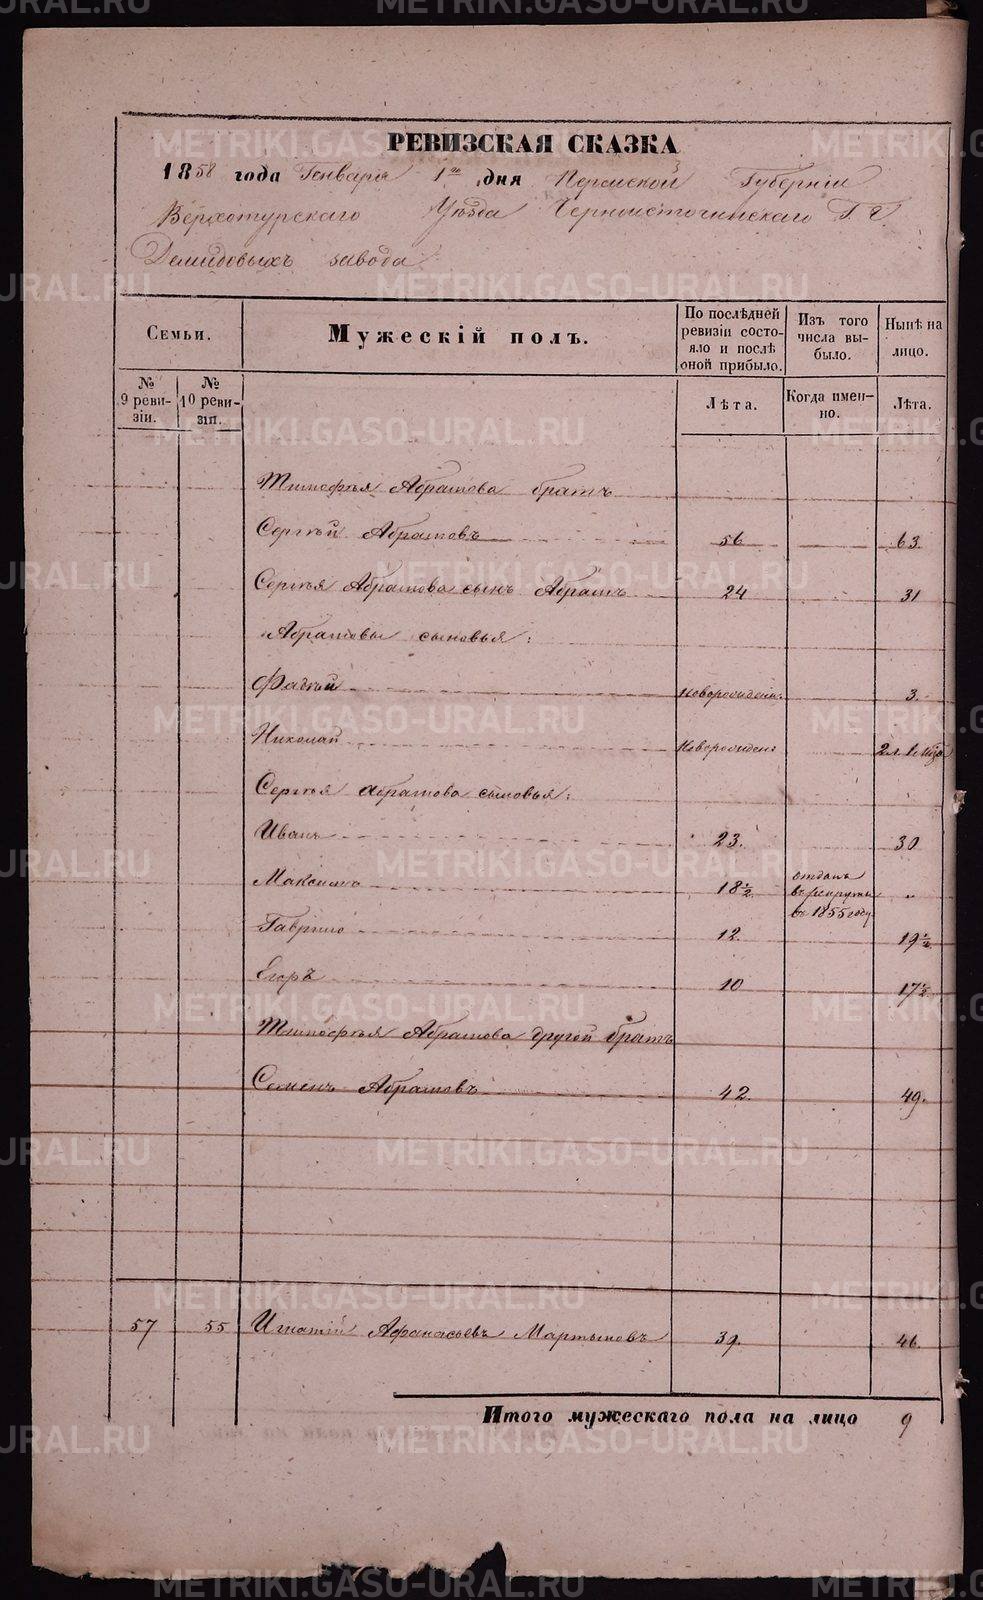 РЕВИЗСКАЯ СКАЗКА
1858 года Генваря 1го дня Пермской Губерніи
Верхотурскаго Уѣзда Черноисточинскаго Г. г.
Демидовыхъ завода
Семьи.
Мужескій полъ.
По послѣдней ревизіи состояло и послѣ оной прибыло.
Изъ того числа выбыло.
Нынѣ на лицо.
№ 9 ревизіи.
№ 10 ревизіи.
Лѣта.
Когда именно.
Лѣта.
Тимофѣя Абрамова братъ
Сергѣй Абрамовъ 56 63
Сергѣя Абрамова сынъ Абрамъ 24 31
Абрамовы сыновья:
Фадѣй новорожден: 3.
Николай новорожден: 2 л.
Сергѣя Абрамова сыновья:
Иванъ 23. 30
Максимъ 18½ отданъ въ рекруты въ 1855 году „
Гаврило 12 19½
Егоръ 10 17½
Тимофѣя Абрамова другой братъ
Семенъ Абрамовъ 42 49.
57 55 Игнатій Афанасьевъ Мартыновъ 39. 46.
Итого мужескаго пола на лицо 9
METRIKI.GASO-URAL.RU